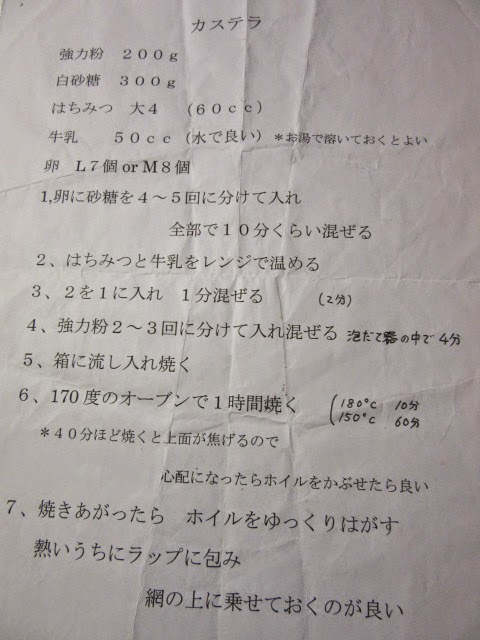 カステラ
強力粉　２００ｇ
白砂糖　３００ｇ
はちみつ　大４　（６０ｃｃ）
牛乳　　５０ｃｃ（水で良い）＊お湯で溶いておくとよい
卵　Ｌ７個 or Ｍ８個
1,卵に砂糖を４～５回に分けて入れ
全部で１０分くらい混ぜる
２、はちみつと牛乳をレンジで温める
３、２を１に入れ　１分混ぜる　　（２分）
４、強力粉２～３回に分けて入れ混ぜる　泡だて器の中で４分
５、箱に流し入れ焼く
６、170 度のオーブンで１時間焼く　（180℃　10分
150℃　60分
＊４０分ほど焼くと上面が焦げるので
心配になったらホイルをかぶせたら良い
７、焼きあがったら　ホイルをゆっくりはがす
熱いうちにラップに包み
網の上に乗せておくのが良い